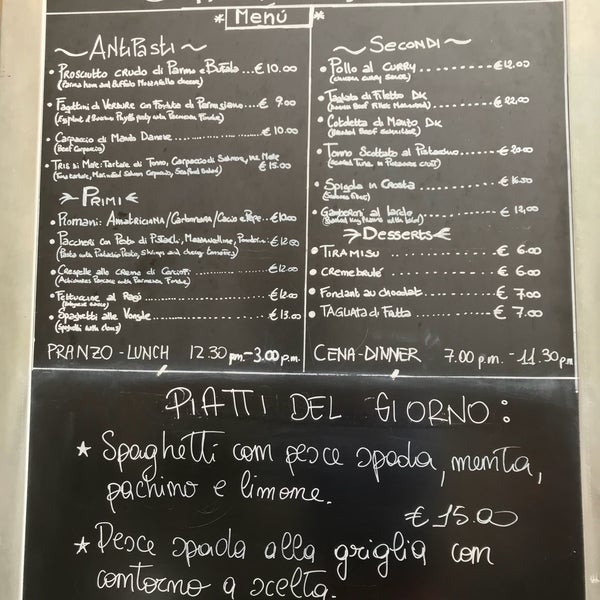 *Menú*
~Antipasti~
• Prosciutto crudo di Parma e Bufala...€ 10.00
(Parma ham and Buffalo Mozzarella cheese)
• Fagottini di Verdure con Fonduta di Parmigiano...€ 9.00
• Carpaccio di Manzo Danese...............€ 10.00
(Beef Carpaccio)
• Tris di Mare: Tartare di Tonno, Carpaccio di Salmone, Ins. Mare
€ 15.00
(Tuna tartare, Marinated Salmon Carpaccio, Seafood Salad)
Primi
• Romani: Amatriciana/Carbonara/Cacio e Pepe..€10.00
• Paccheri con Pesto di Pistacchi, Mazzancolle, Pomodorini €12.00
(Pasta with Pistachio Pesto, Shrimps and cherry tomatoes)
• Crespelle alla Crema di Carciofi...............€12.00
(Artichokes Pancakes with Parmesan Fondue)
• Fettuccine al Ragù....................€12.00
• Spaghetti alle Vongole...................€ 13.00
(Spaghetti with clams)
PRANZO - LUNCH 12.30 pm - 3.00 p.m.
~Secondi~
• Pollo al Curry............€12.00
(Chicken curry sauce)
• Tagliata di Filetto DK.........€ 22.00
• Cotoletta di Manzo DK
(Breaded Beef Schnitzel)
• Tonno Scottato al Pistacchio.......€ 20.00
• Spigola in Crosta.............€ 16.50
• Gamberoni al lardo..........€ 12,00
Desserts
• Tiramisu................€ 6.00
• Creme brulé...............€ 6.00
• Fondant au chocolat.........€ 7.00
• Tagliata di Frutta...........€ 7.00
CENA - DINNER 7.00 p.m. - 11.30 p.m
PIATTI DEL GIORNO:
* Spaghetti con pesce spada, menta,
pachino e limone.
€ 15.00
* Pesce spada alla griglia con
contorno a scelta.